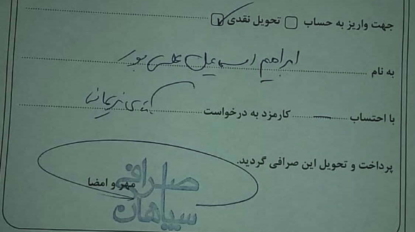 جهت واریز به حساب تحویل نقدی
به نام ابراهیم اسمعیل
با احتساب ــــ کارمزد به درخواست
پرداخت و تحویل این صرافی گردید.
مهر و امضا
صرافی
سپاهان